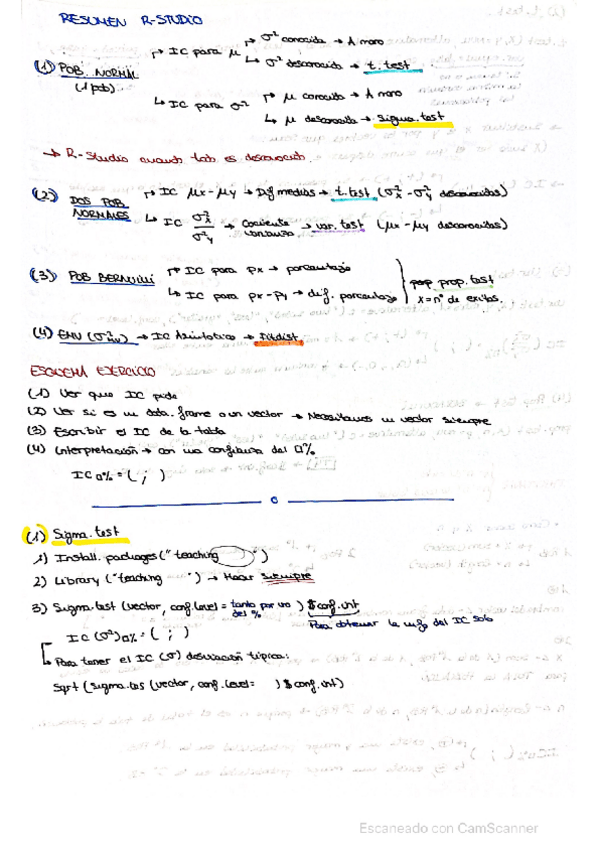 RESUMEN R-STUDIO
(1) POB. NORMAL (1 pob)
→ IC para μ → σ² conocida → A mano
↳ σ² desconocida → t.test
↳ IC para σ² → μ conocida → A mano
↳ μ desconocida → Sigma.test
→ R-Studio cuando todo es desconocido.
(2) DOS POB. NORMALES
→ IC μx - μy → Dif medias → t.test (σ²x - σ²y desconocidas)
↳ IC σ²x / σ²y → Cociente varianzas → var.test (μx - μy desconocidas)
(3) POB BERNUILLI
→ IC para px → porcentaje
↳ IC para px - py → dif. porcentaje
prop.test
x = nº de exitos.
(4) EMV → IC Asintotico → fitdist
ESQUEMA EJERCICIO
(1) Ver que IC pide
(2) Ver si es un data.frame o un vector → Necesitamos un vector siempre
(3) Escribir el IC de la tabla
(4) Interpretación → con una confianza del □%
IC□% = ( ; )
(1) Sigma.test
1) Install.packages("teaching ")
2) Library ("teaching ") → Hacer siempre
3) Sigma.test (vector, conf.level = tanto por uno del % ) $conf.int
Para obtener la info del IC solo
IC (σ²)□% = ( ; )
↳ Para tener el IC (σ) desviación típica:
Sqrt (sigma.tes (vector, conf.level= ) $conf.int)
Escaneado con CamScanner